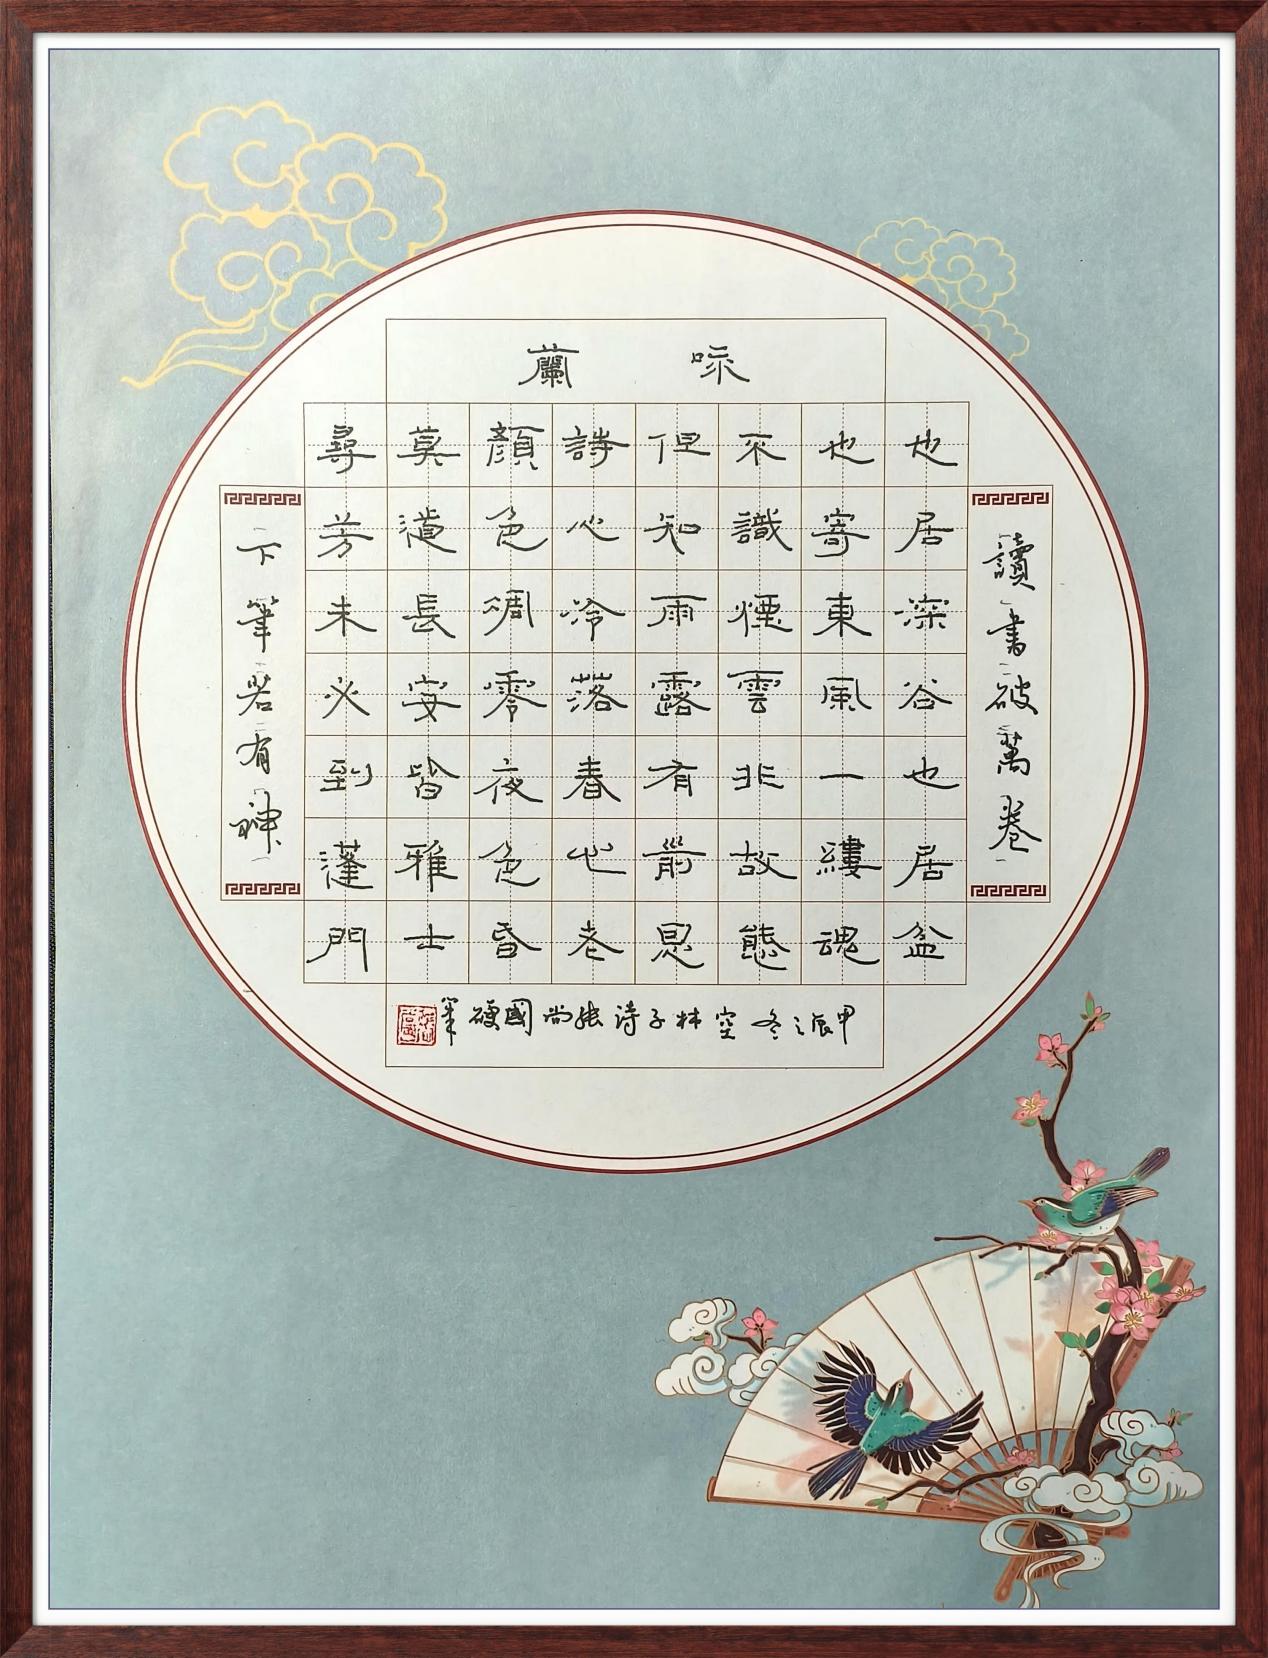 咏蘭
讀書破萬卷
也居深谷也居盆
也寄東風一縷魂
不識煙雲非故態
但知雨露有前恩
詩心冷落春心老
顔色凋零夜色昏
莫道長安皆雅士
尋芳未必到蓬門
下筆若有神
甲辰之冬空林子詩張尚國硬筆